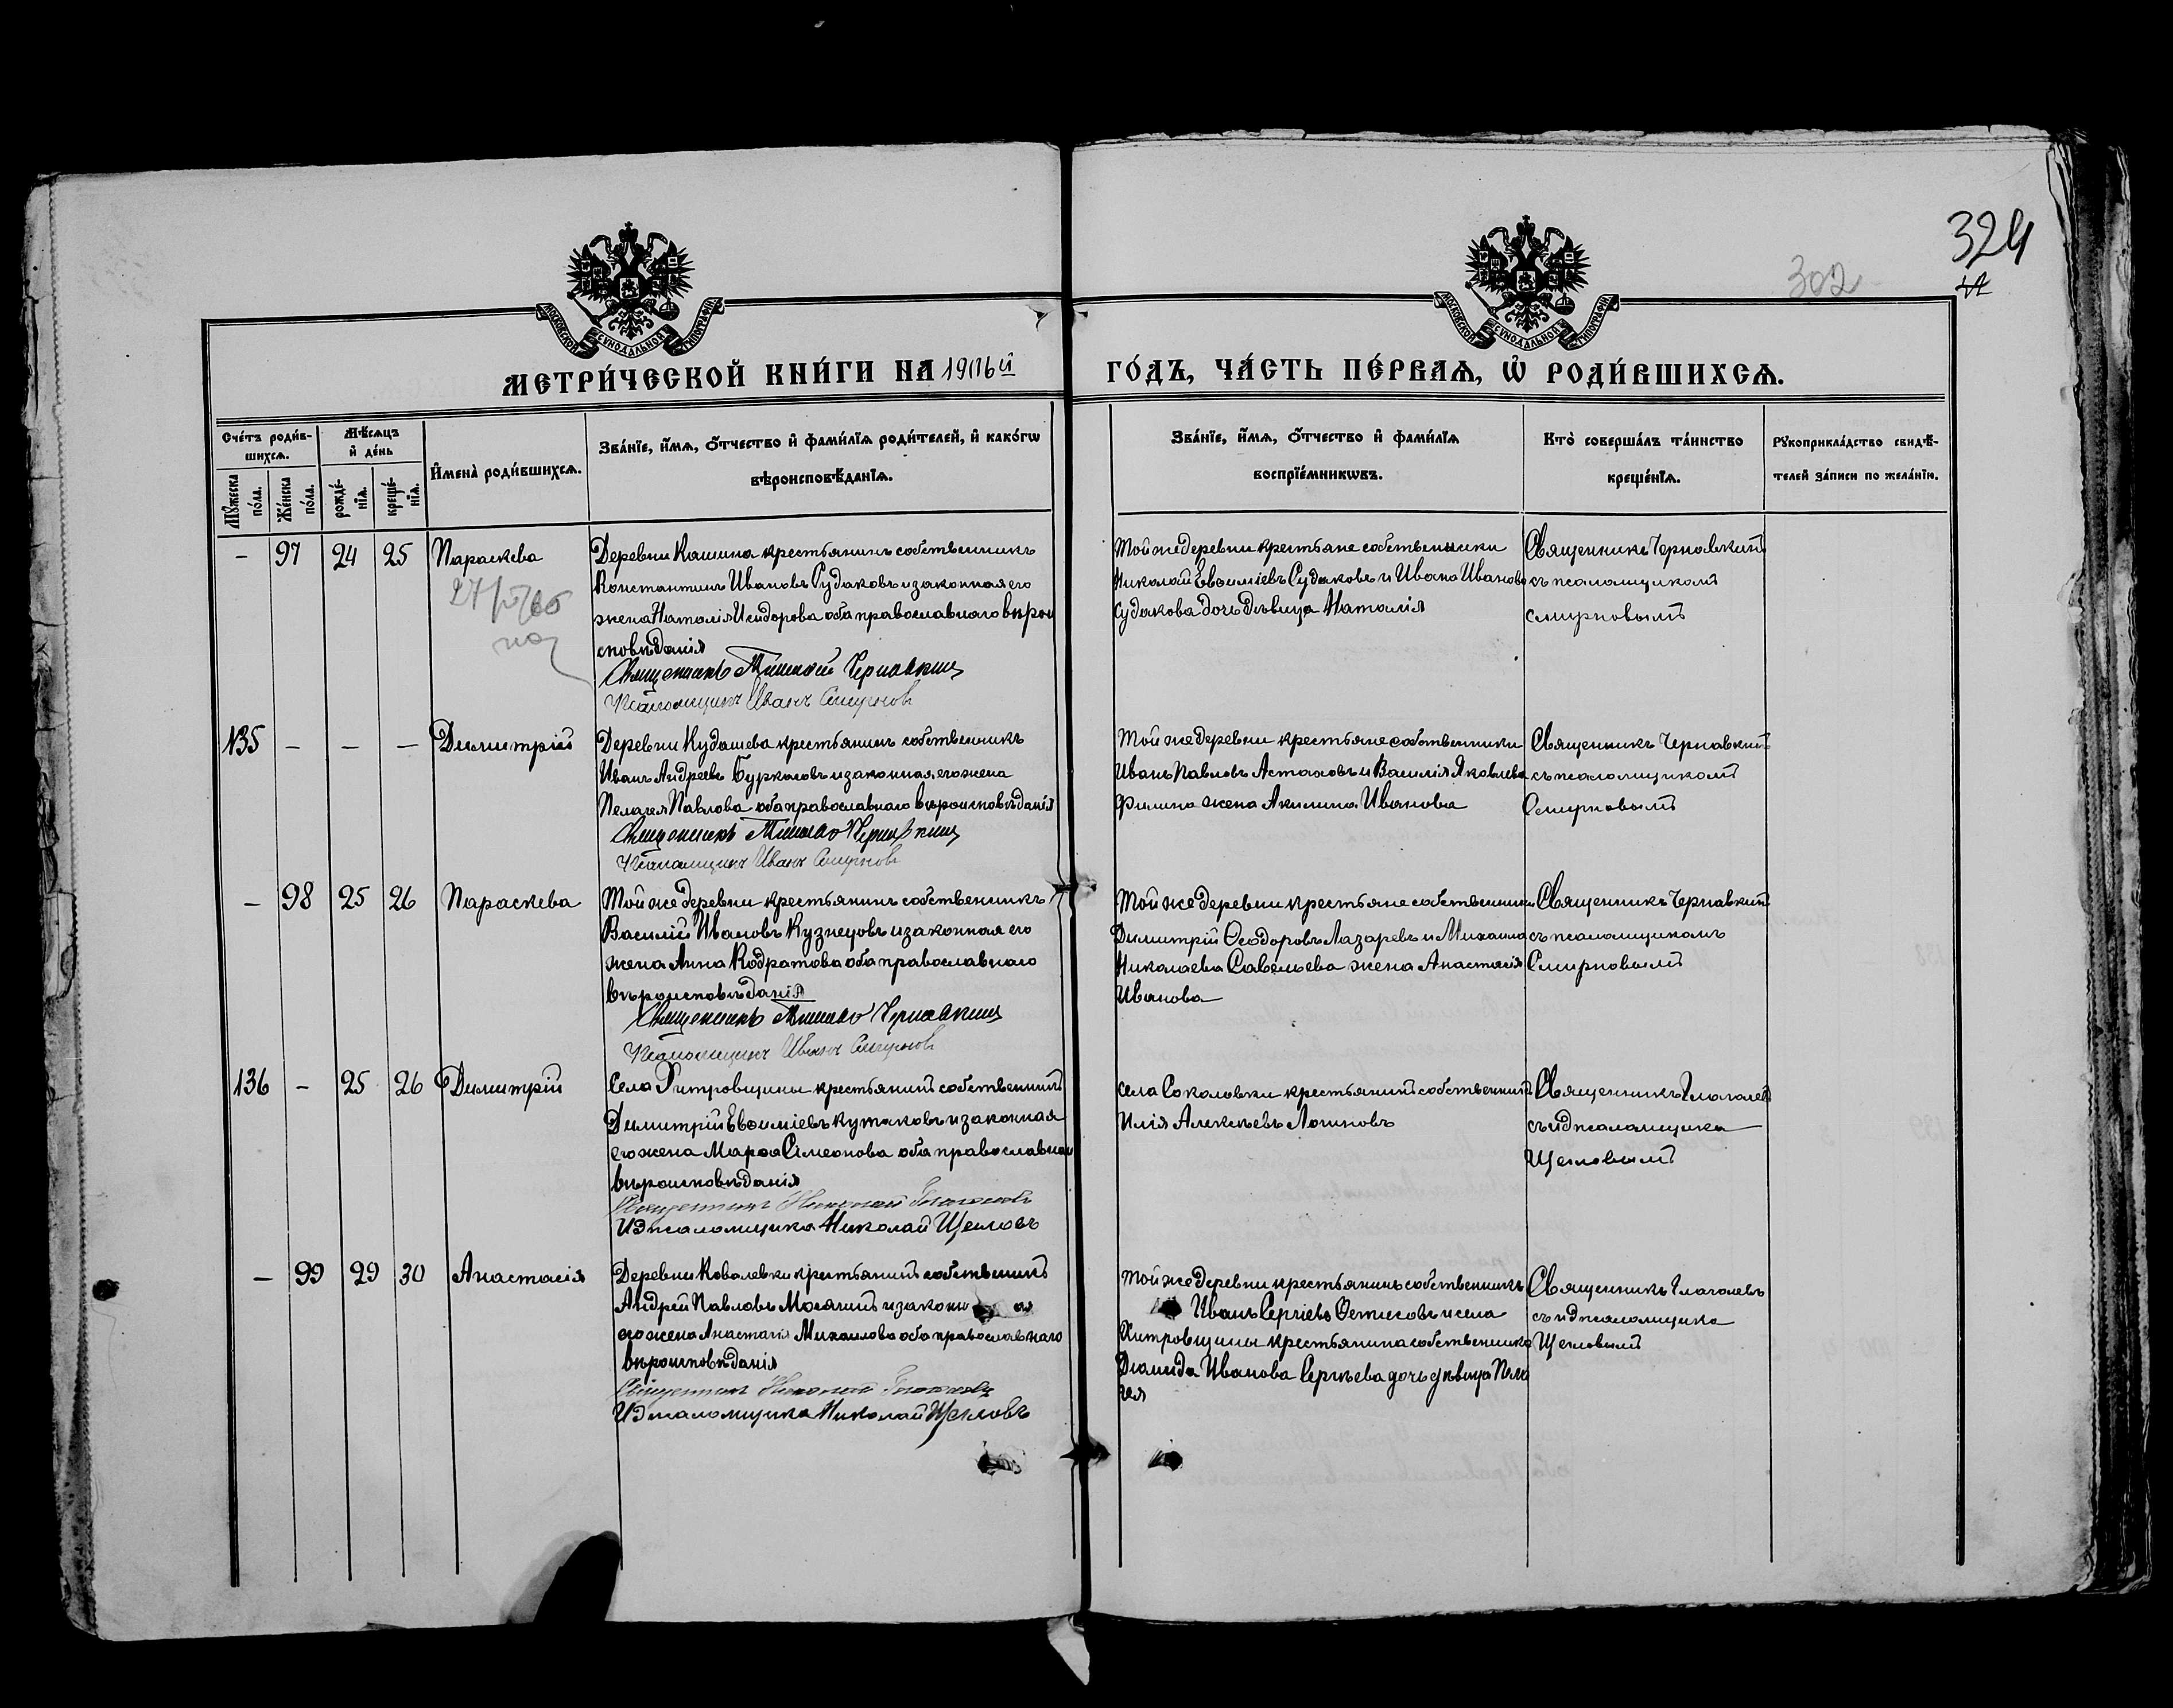 324
302
МОСКОВСКОЙ СѴНОДАЛЬНОЙ ТИПОГРАФІИ
МОСКОВСКОЙ СѴНОДАЛЬНОЙ ТИПОГРАФІИ
МЕТРИ́ЧЕСКОЙ КНИ́ГИ НА 1916й ГО́ДЪ, ЧА́СТЬ ПЕ́РВАѦ, Ѡ҆ РОДИ́ВШИХСѦ.
Сче́тъ роди́в-
шихсѧ.
Мꙋ́жеска
по́ла.
Же́нска
по́ла.
Мѣ́сѧцъ
и҆ де́нь
рожде́-
нїѧ.
креще́-
нїѧ.
И҆мена̀ роди́вшихсѧ.
Зва́нїе, и҆́мѧ, ѻ҆́тчество и҆ фами́лїѧ роди́телей, и҆ како́гѡ
вѣроисповѣ́данїѧ.
Зва́нїе, и҆́мѧ, ѻ҆́тчество и҆ фами́лїѧ
воспрїе́мникѡвъ.
Кто̀ соверша́лъ та́инство
креще́нїѧ.
Рꙋкоприкла́дство свидѣ́-
телей за́писи по жела́нїю.
– 97 24 25 Параскева
Деревни Кашина крестьянинъ собственникъ
Константинъ Ивановъ Судаковъ и законная его
жена Наталія Исидорова оба православнаго вѣрои
сповѣданія
Священникъ Чернавкинъ
Псаломщикъ Иванъ Смирновъ
Той же деревни крестьяне собственники
Николай Евѳиміевъ Судаковъ и Ивана Иванова
Судакова дочь дѣвица Наталія
Священникъ Чернавкинъ
съ псаломщикомъ
Смирновымъ
135 – – – Димитрій
Деревни Кудашева крестьянинъ собственникъ
Иванъ Андреевъ Буркаловъ и законная его жена
Пелагея Павлова оба православнаго вѣроисповѣданія
Священникъ Чернавкинъ
Псаломщикъ Иванъ Смирновъ
Той же деревни крестьяне собственники
Иванъ Павловъ Астаховъ и Василія Яковлева
Филина жена Акилина Иванова
Священникъ Чернавкинъ
съ псаломщикомъ
Смирновымъ
– 98 25 26 Параскева
Той же деревни крестьянинъ собственникъ
Василій Ивановъ Кузнецовъ и законная его
жена Анна Кодратова оба православнаго
вѣроисповѣданія
Священникъ Чернавкинъ
Псаломщикъ Иванъ Смирновъ
Той же деревни крестьяне собственники
Димитрій Ѳеодоровъ Лазаревъ и Михаила
Николаева Савельева жена Анастасія
Иванова
Священникъ Чернавкинъ
съ псаломщикомъ
Смирновымъ
136 – 25 26 Димитрій
Села Хитровщины крестьянинъ собственникъ
Димитрій Евѳиміевъ Кутаковъ и законная
его жена Марѳа Симеонова оба православнаго
вѣроисповѣданія
Священникъ Николай Глаголевъ
ИД псаломщика Николай Щегловъ
Села Соколовки крестьянинъ собственникъ
Илія Алексѣевъ Логиновъ
Священникъ Глаголевъ
съ ид псаломщика
Щегловымъ
– 99 29 30 Анастасія
Деревни Ковалевки крестьянинъ собственникъ
Андрей Павловъ Мосягинъ и законн ая
его жена Анастасія Михаилова оба православнаго
вѣроисповѣданія
Священникъ Николай Глаголевъ
ИД псаломщика Николай Щегловъ
Той же деревни крестьянинъ собственникъ
Иванъ Сергіевъ Ѳетисовъ и села
Хитровщины крестьянина собственника
Діомида Иванова Сергѣева дочь дѣвица Пела
гея
Священникъ Глаголевъ
съ ид псаломщика
Щегловымъ